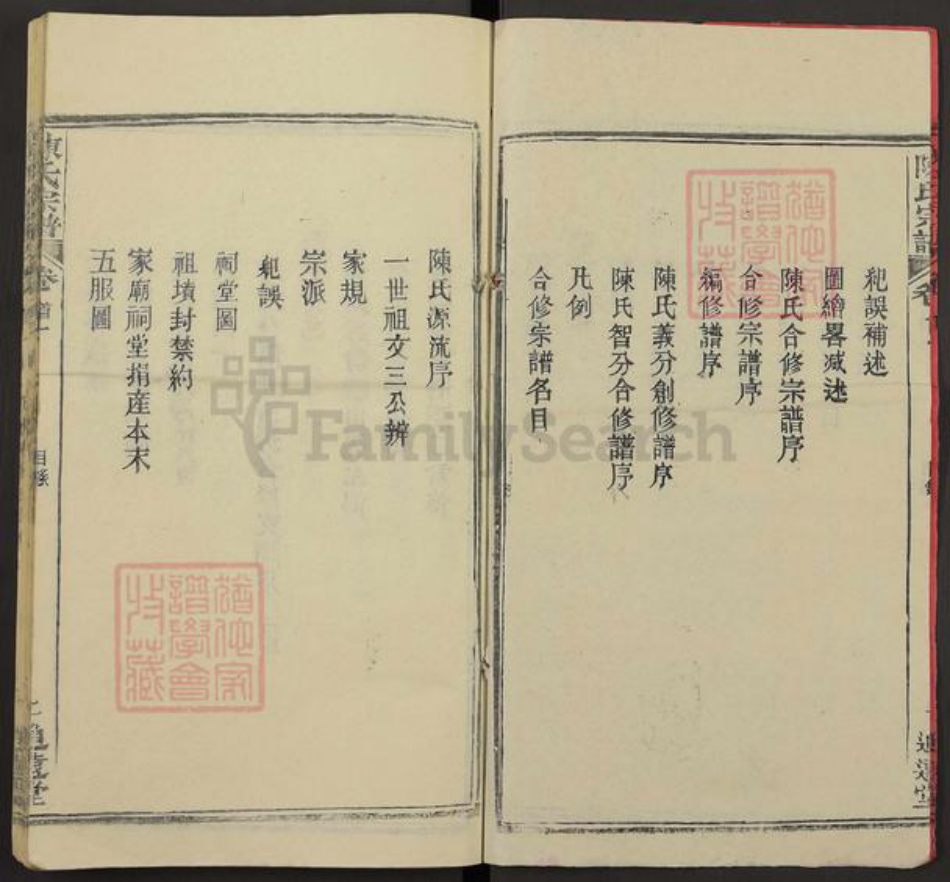 陳氏宗譜
紕誤補述
圖繪畧减述
陳氏合修宗譜序
合修宗譜序
編修譜序
陳氏義分創修譜序
陳氏智分合修譜序
凡例
合修宗譜名目
陳氏源流序
一世祖文三公辨
家規
宗派
紕誤
祠堂圖
祖墳封禁約
家廟祠堂捐產本末
五服圖
陳氏宗譜
卷首
目錄
追遠堂
譜學會
收藏
FamilySearch